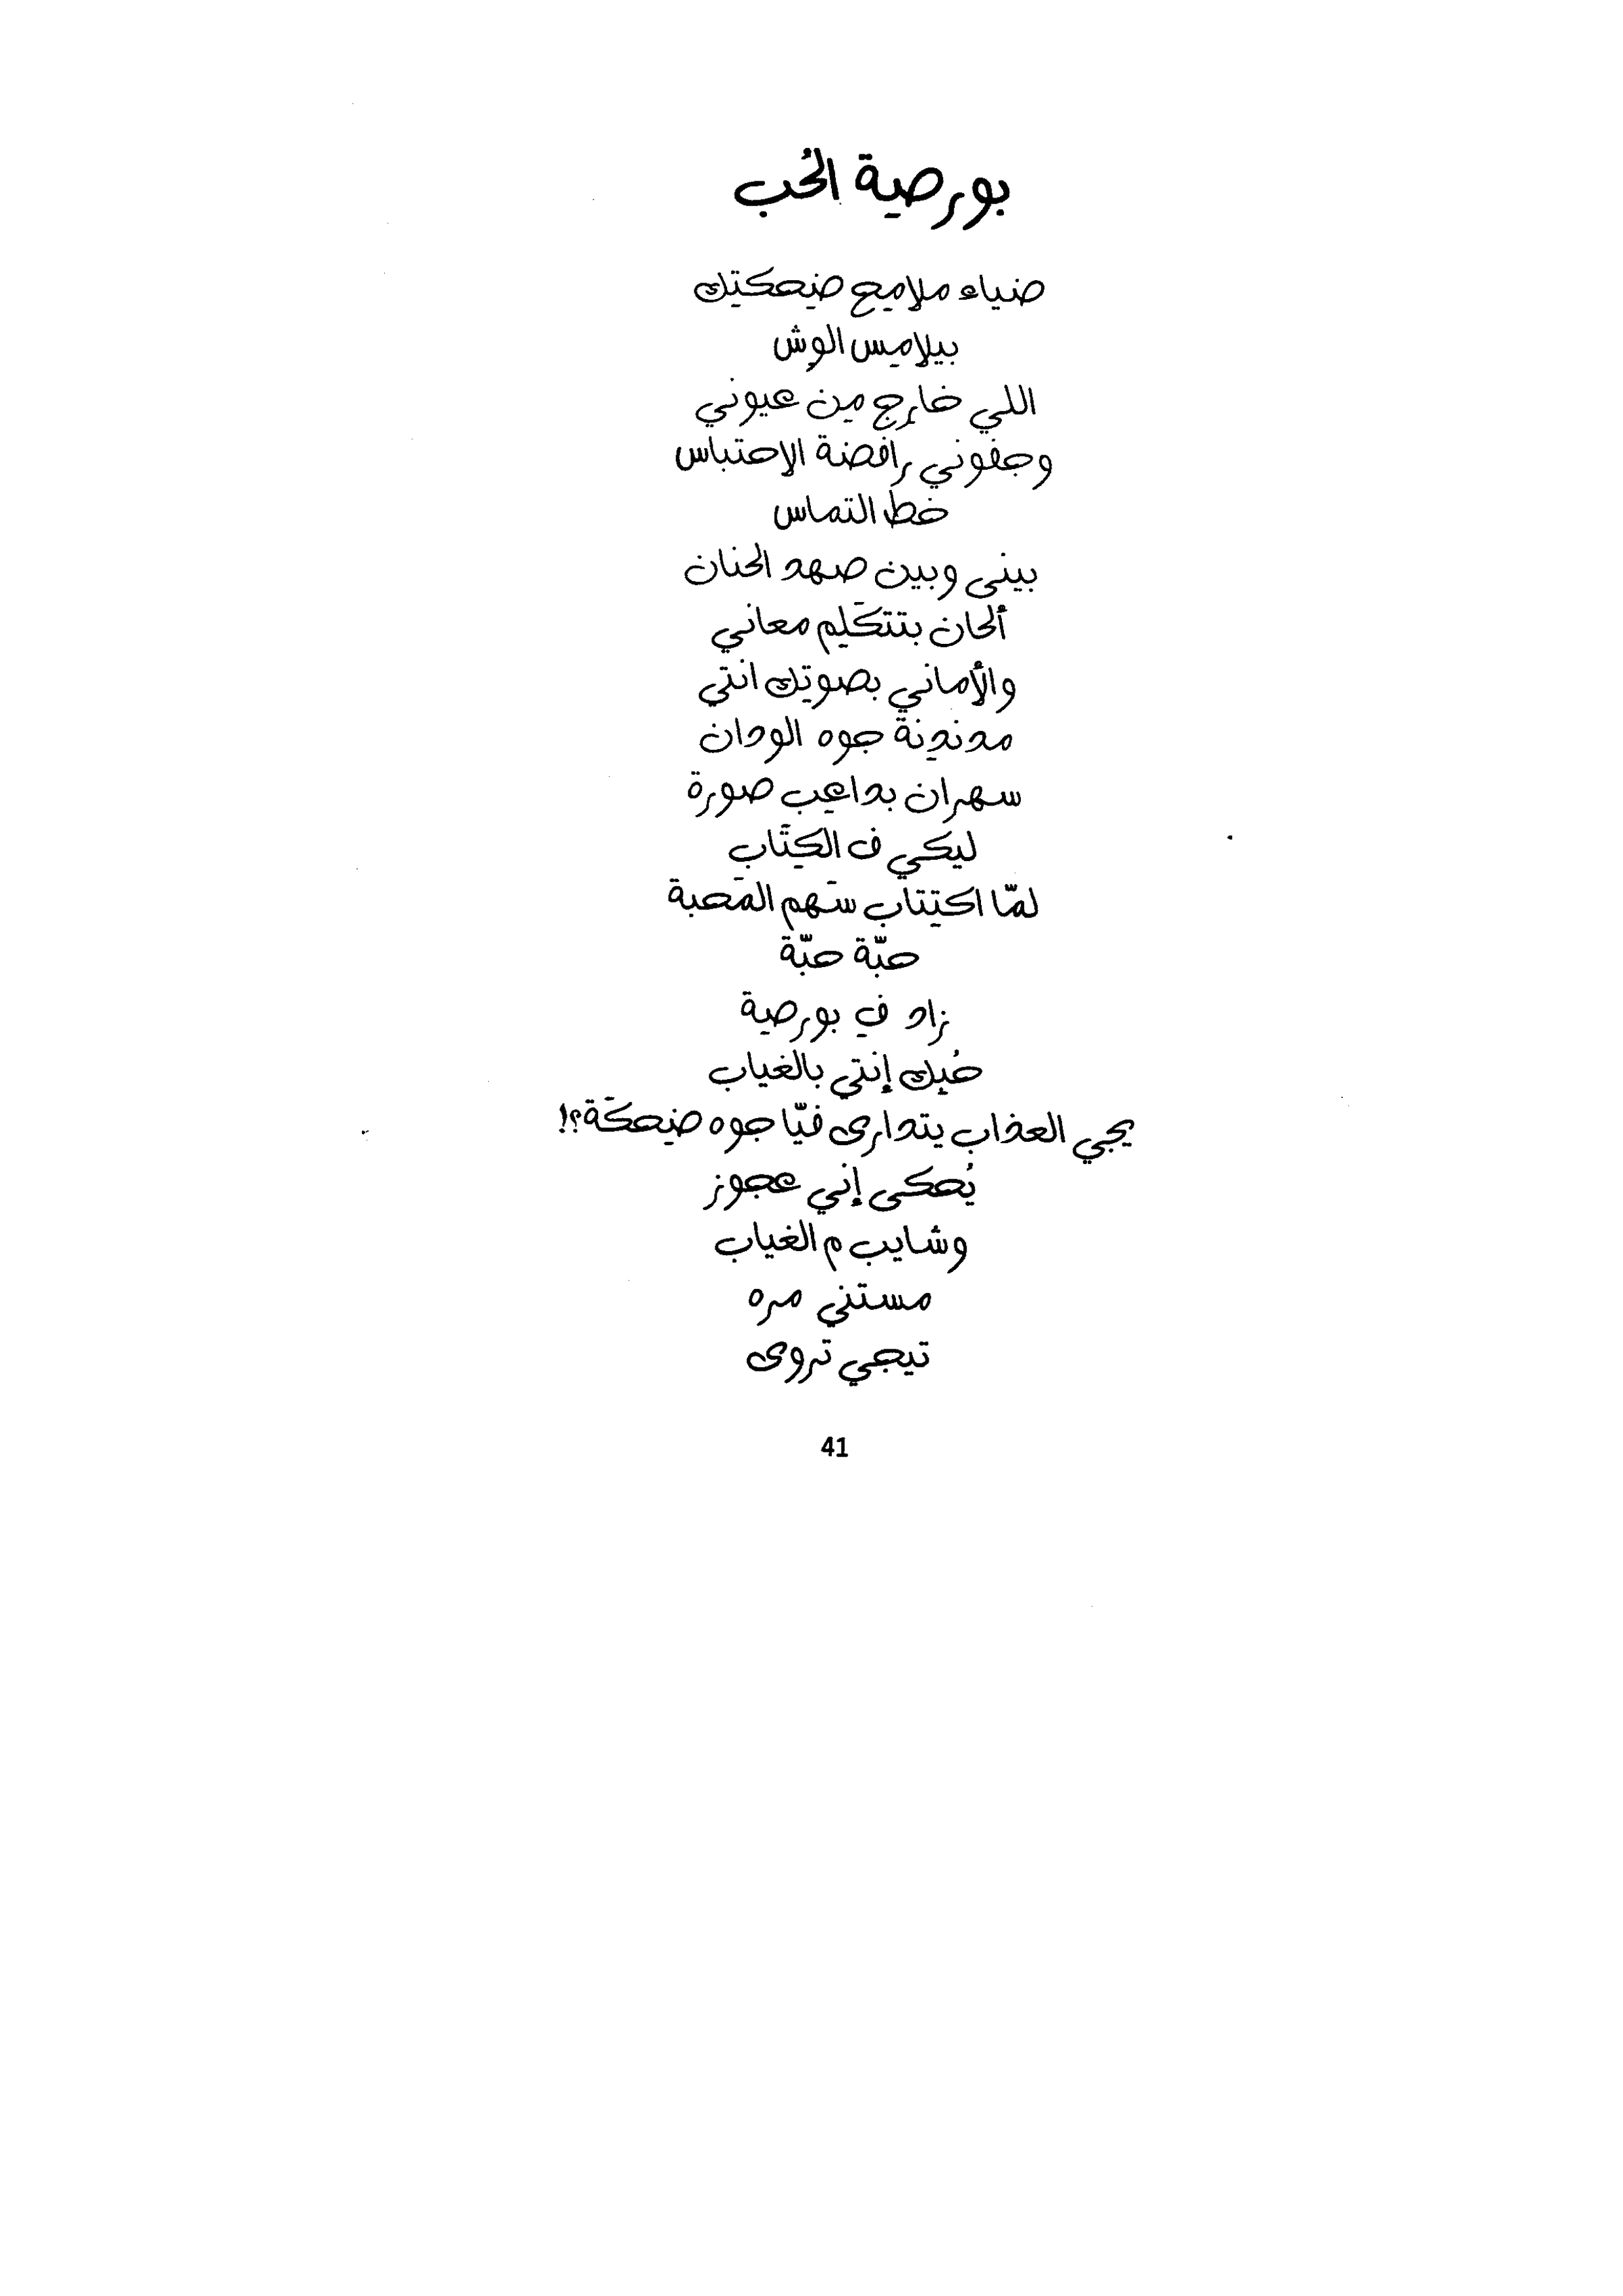 بورصِية الحُب
ضياء ملامِح ضِحكتِك
بيلامِس الوِش
اللي خارِج مِن عيوني
وجفوني رافضة الإحتباس
خط التماس
بيني وبين صهد الحنان
ألحان بتتكَلِم معاني
والأماني بصوتِك انتي
مدندِنة جوه الودان
سهران بداعِب صورة
ليكي ف الكِتَاب
لمّا اكتِتاب سَهم المَحبة
حبّة حبّة
زاد في بورصِية
حُبِك إنتي بالغياب
يجي العذاب يتدارى فيّا جوه ضِحكَة؟!
يُحكى إني عجوز
وشايب م الغياب
مستني مره
تيجي تروى
41